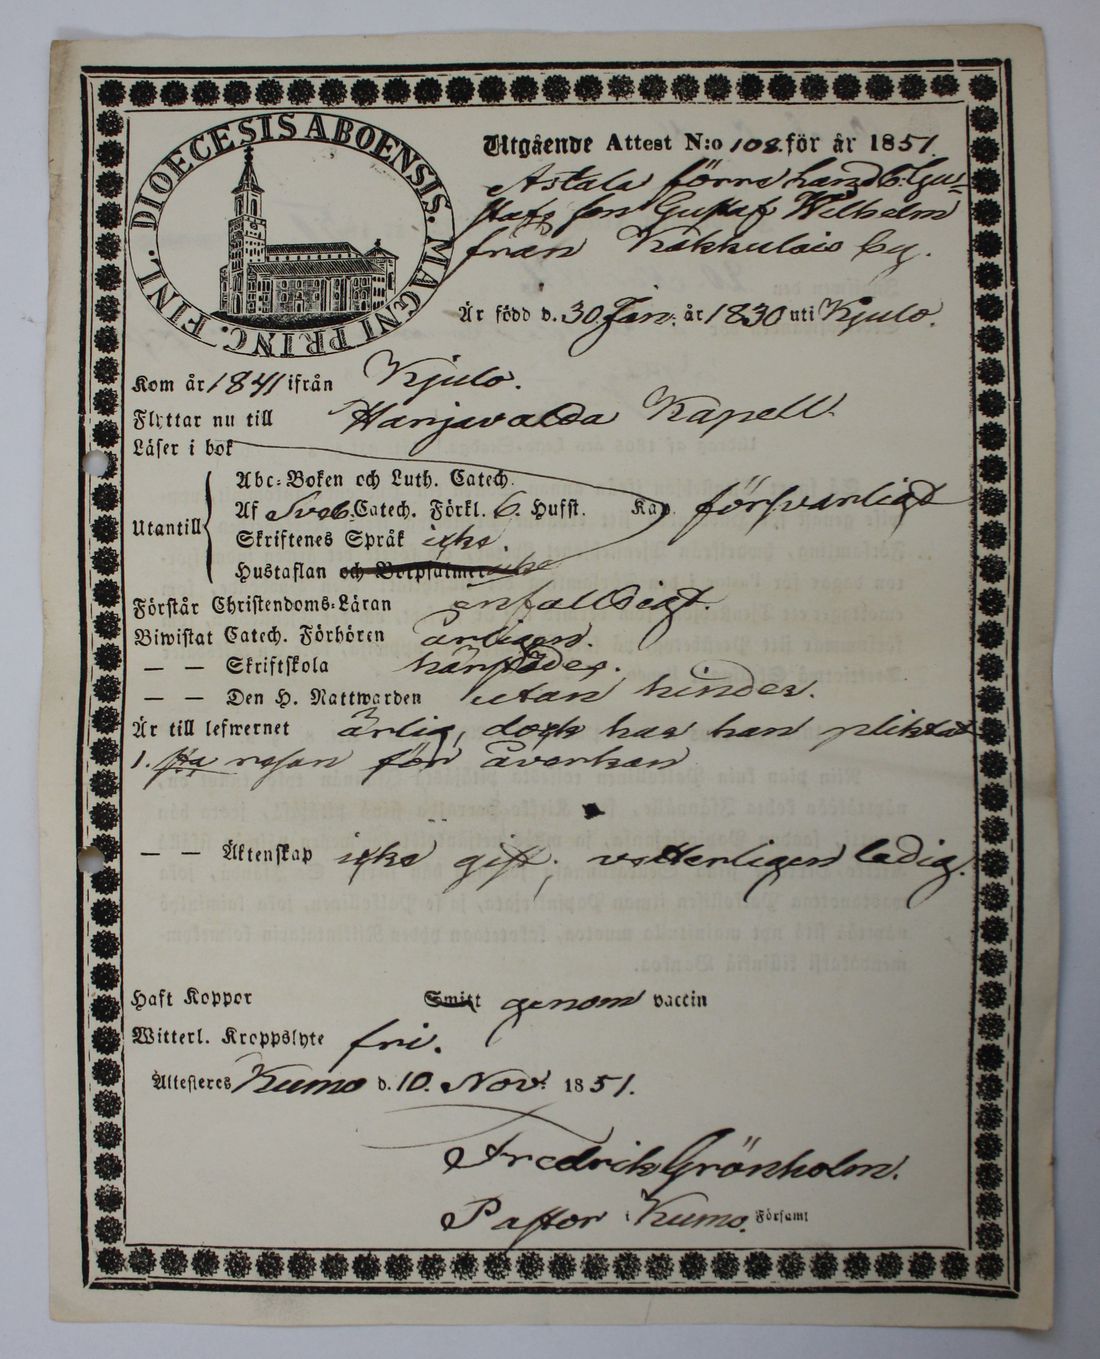 DIOECESIS ABOENSIS. MAGNI PRINC. FINL.
Utgående Attest N:o 108. för år 1851.
Astala förre handb. Gus-
tafs son Gustaf Wilhelm
från Kakkulais by.
Är född d. 30 Jan: år 1830 uti Kjulo.
Kom år 1841 ifrån Kjulo.
Flyttar nu till Harjavalda Kapell.
Läser i bok
Abc-Boken och Luth. Catech.
Utantill Af Sveb. Catech. Förkl. 6. Hufst. Kap. försvarligt
Skriftenes Språk icke.
Hustaflan och Botpsalmerne icke
Förstår Christendoms-Läran enfalldigt.
Biwistat Catech. Förhören årligen.
— — Skriftskola härstädes.
— — Den H. Nattwarden utan hinder.
Är till lefwernet ärlig, dock har han pliktat
1. sta resan för åverkan
— — Äktenskap icke gift, vetterligen ledig.
Haft Koppor Smitt genom vaccin
Witterl. Kroppslyte fri.
Attesteres Kumo d. 10. Nov: 1851.
Fredrik Grönholm.
Pastor i Kumo. Församl